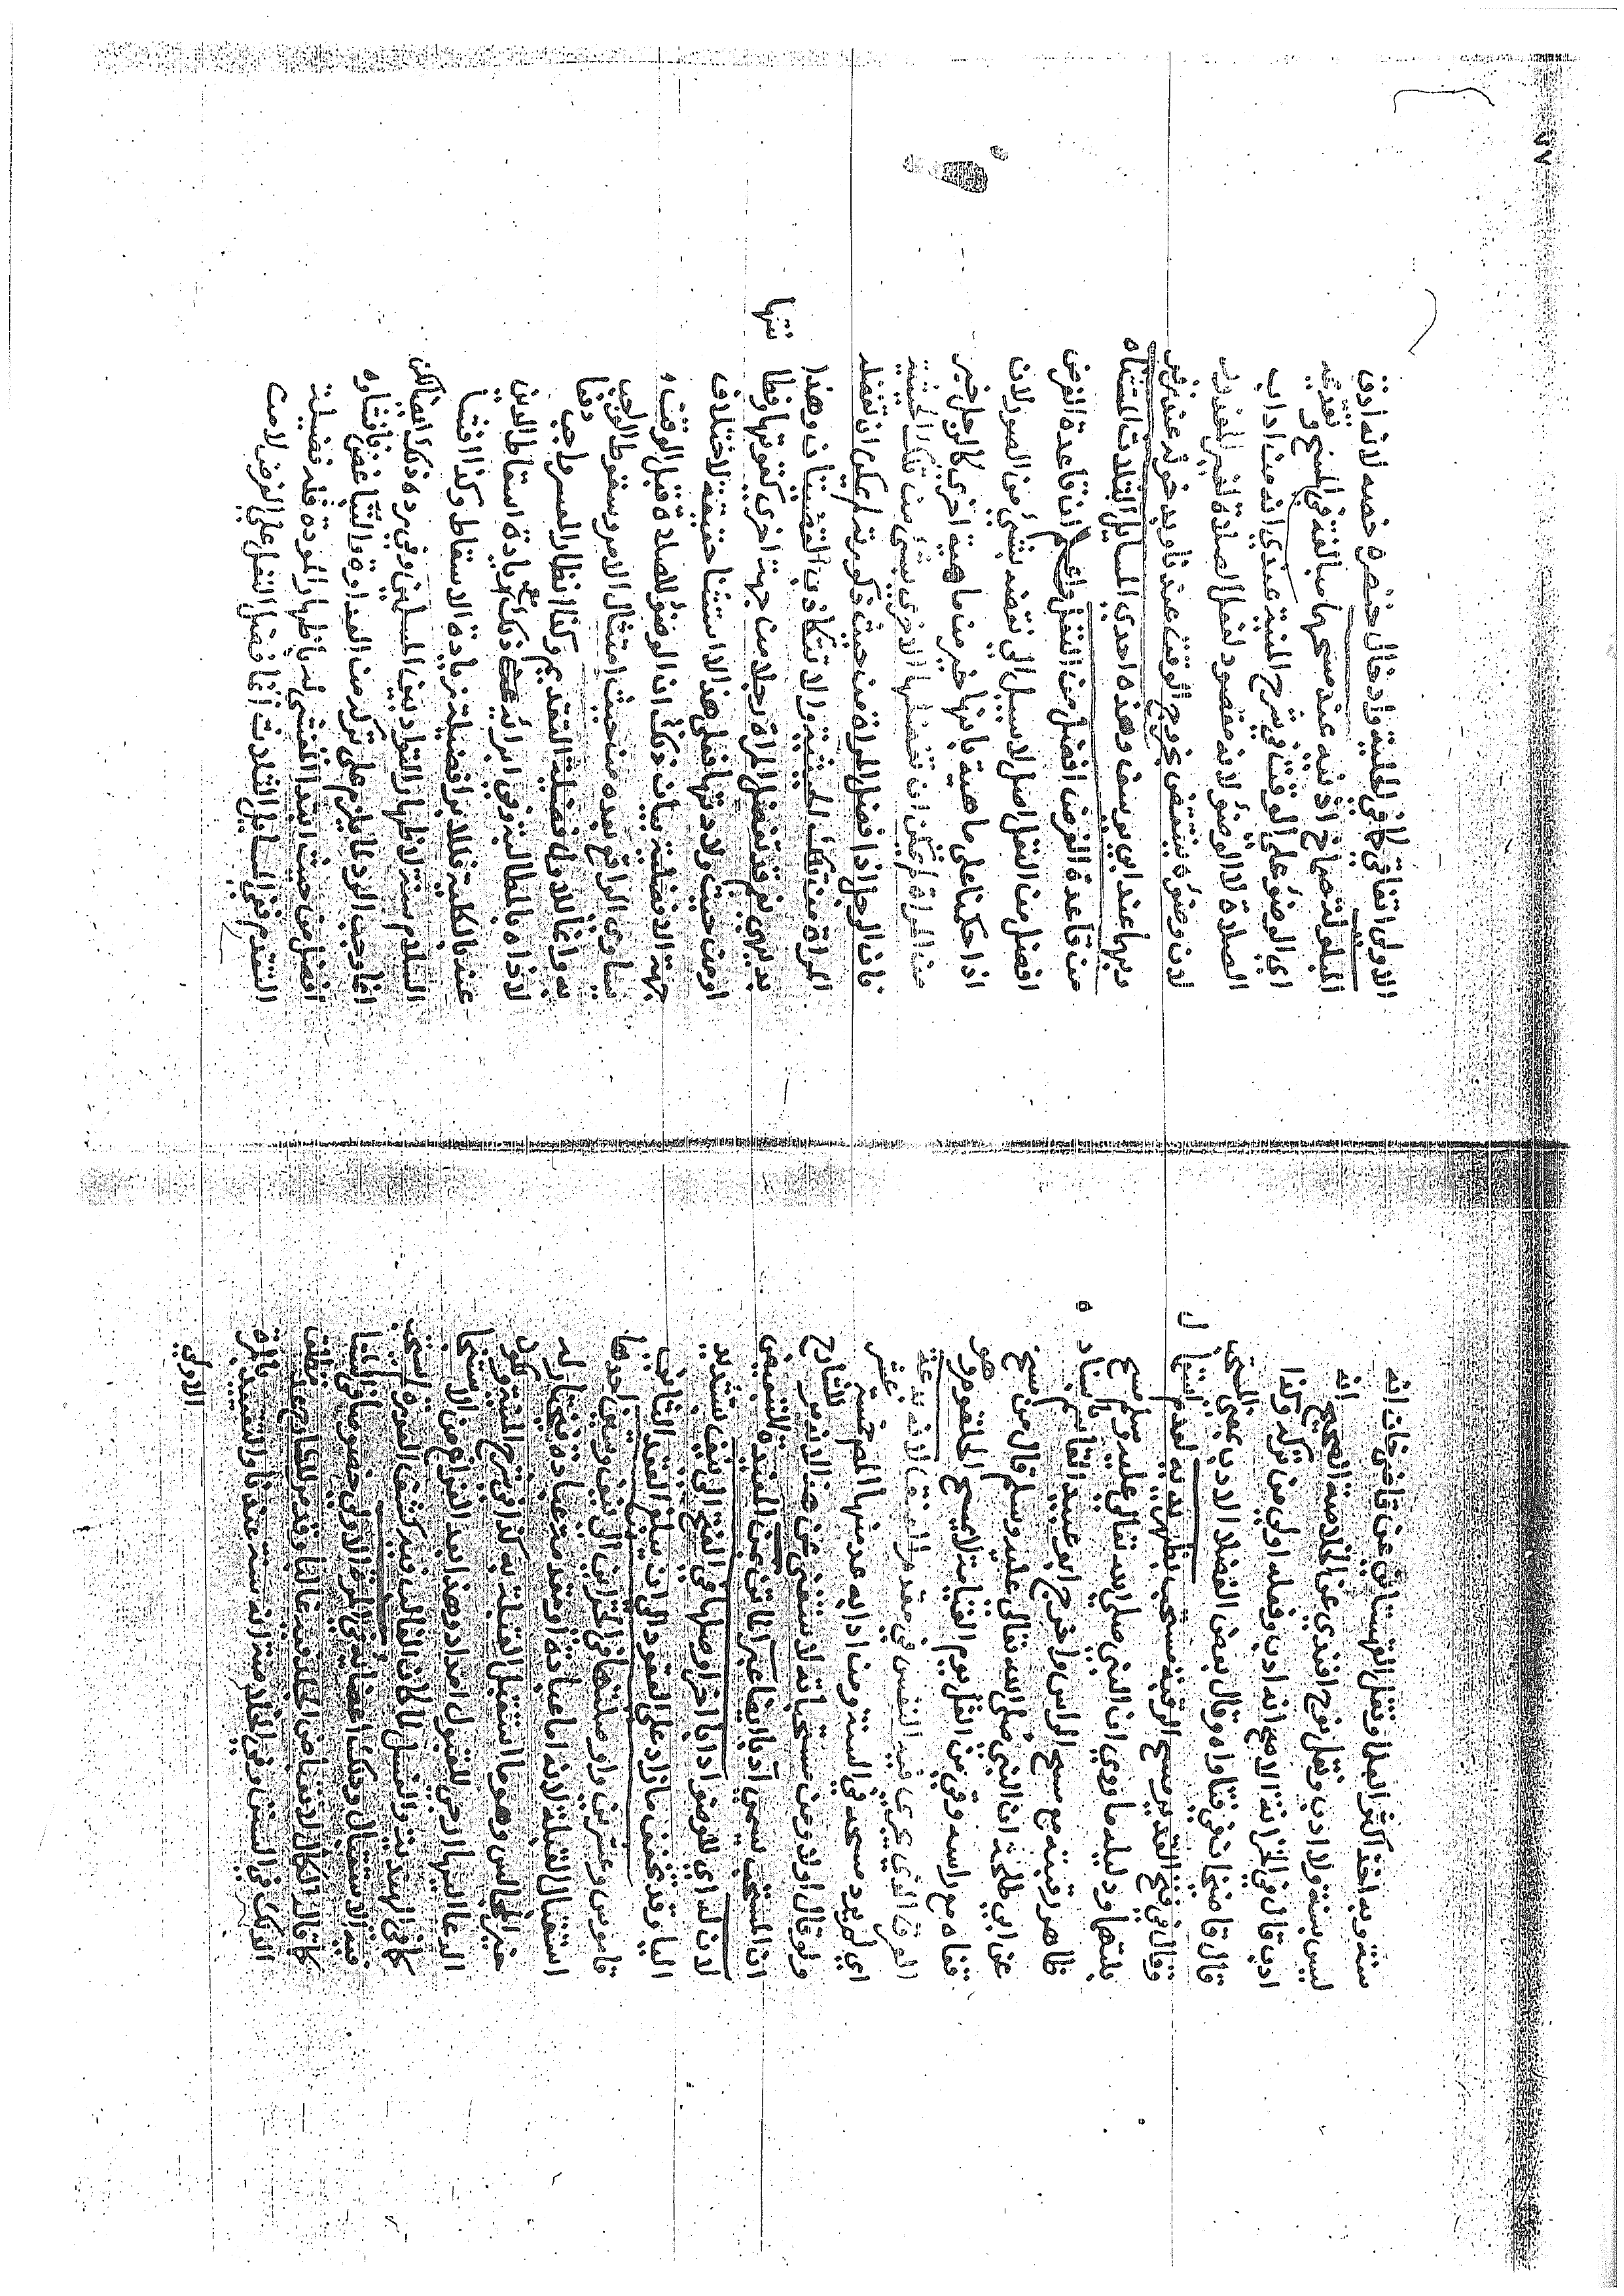 سنة وبه اخذ اكثر العلما ونقل القهستاني عن قاضي خان انه
ليس بسنة ولا ادب ونقل نوح افندي عن الخلاصة الصحيح انه
ادب قال في الخزانة الاصح انه ادب وفعله اولى من تركه وكذا
قال قاضيخان في فتاواه وقال بعض الفضلا الادب بمعنى المستحب
وقال في فتح القدير مسح الرقبة مستحب بظهر يديه لعدم استعمال
بلتهما ودليله ما روي ان النبي صلى الله تعالى عليه وسلم مسح
ظاهر رقبته مع مسح الراس واخرج ابو عبيد القاسم باسناده
عن ابي طلحة ان النبي صلى الله تعالى عليه وسلم قال من مسح
قفاه مع راسه وقي من الغل يوم القيامة لا مسح الحلقوم وهو
العرق الذي يجري فيه النفس في مقدم العنق لانه بدعة
اي لم يرد مسحه في السنة ومن ادابه عد منها المص خمسة عشر
ولو قال اولا ومن مستحباته لاستغنى عن هذا الا ان الشارح
ان المستحب يسمى ادبا ايضا عبر الماتن بمن المفيدة للتبعيض
لان له اي للوضوء ادابا اخر اوصلها في الفتح الى نيف بتشديد
اليا وقد يخفف ما زاد على العقود الى ان يبلغ العقد الثاني
قاموس وعشرين واوصلتها في الخزاين الى نيف وستين احدها
استقبال القبلة لانه اما عبادة او مقدمة عبادة فيختار له
خير المجالس وهو ما استقبل القبلة به كذا في شرح وكون
الدعا اليها ارجى للقبول امداد وهذا بعد الفراغ من الاستنجا
كما في الهندية والغسل لما كان الغالب فيه كشف العورة استحب
فيه الاستقبال ودلك اعضائه في المرة الاولى خصوصا في الشتا
كما قاله الكمال لانقباض الجلد فيه غالبا وقد مر للشارح عد مطلق
الدلك في السنن وفي الخلاصة انه سنة عندنا والتقييد بالمرة
الاولى
٧٧
الاولى اتفاقي كما في الحلية وادخال خنصره خصه لانه ادق
المبلولة صماخ اذنيه عند مسحهما مبالغة في المسح وتقديمه
اي الوضوء على الوقت وفي شرح المنية عندي انه من اداب
الصلاة لا الوضوء لانه مقصود لفعل الصلاة لغير المعذور
لان وضوءه ينتقض بخروج الوقت عندنا وبدخوله عند زفر
وبهما عند ابي يوسف وهذه احدى المسايل الثلاث المستثناه
من قاعدة الفرض افضل من النفل واعلم ان قاعدة الفرض
افضل من النفل اصل لا سبيل الى نقضه بشيء من الصور لان
اذا حكمنا على ماهية بانها خير من ماهية اخرى كالرجل خير
من المراة لم يمكن ان تفضلها الاخرى بشيء من تلك الحيثية
فان الرجل اذا فضل المراة من حيث ذكورته لم يمكن ان تفضله
المراة من تلك الحيثية والا تكاذب القضيتان وهذا
بديهي نعم قد تفضل المراة رجلا من جهة اخرى كقوتها وفطنتها
او من حيث ولادتها فعلى هذا لا استثنا حقيقة لاختلاف
جهة الافضلية بيان ذلك ان الوضوء للصلاة قبل الوقت
يساوي الواقع بعده من حيث امتثال الامر وسقوط الواجب
به وانما للاول فضيلة التقديم وكذا انظار المعسر واجب دفعا
لاذاه بالمطالبة وفي ابرائه ذلك مع زيادة اسقاط الدين
عنه بالكلية فللابرا فضيلة زيادة الاسقاط وكذا افشا
السلام سنة لاظهار التوادد بين المسلمين وفي رده ذلك ايضا لكن
انما وجب الرد لما يلزم على تركه من العداوة والتباغض فافشاوه
افضل من حيث ابتدا المفشي له باظهار المودة فله فضيلة
التقدم ففي المسايل الثلاث انما فضل النفل على الفرض لا من